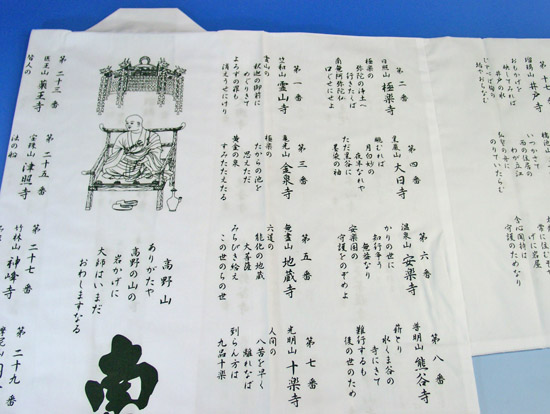 瑠璃山 井戸寺
おもかげを
映してみれば
井戸の水
いつかさて
西の住居の
わが立江
弘誓の舟に
のりていたらむ
げに岩屋
舎心聞持は
守護のためなり
第二番
日照山 極楽寺
極楽の
弥陀の浄土へ
行きたくば
南無阿弥陀仏
口ぐせにせよ
第四番
黒巌山 大日寺
眺むれば
月白妙の
夜半なれや
ただ黒谷に
墨染の袖
第六番
温泉山 安楽寺
かりの世に
知行争う
無益なり
安楽国の
守護をのぞめよ
第八番
普明山 熊谷寺
薪とり
水くま谷の
寺にきて
難行するも
後の世のため
第一番
竺和山 霊山寺
霊山の
釈迦の御前に
めぐりきて
よろずの罪も
消えうせにけり
第三番
亀光山 金泉寺
極楽の
たからの池を
思えただ
黄金の泉
すみたたえたる
第五番
無尽山 地蔵寺
六道の
能化の地蔵
大菩薩
みちびき給え
この世のちの世
第七番
光明山 十楽寺
人間の
八苦を早く
離れなば
到らん方は
九品十楽
高野山
ありがたや
高野の山の
岩かげに
大師はいまだ
おわしますなる
南
第二十三番
医王山 薬王寺
皆人の
第二十五番
宝珠山 津照寺
法の船
第二十七番
竹林山 神峰寺
第二十九番
摩尼山